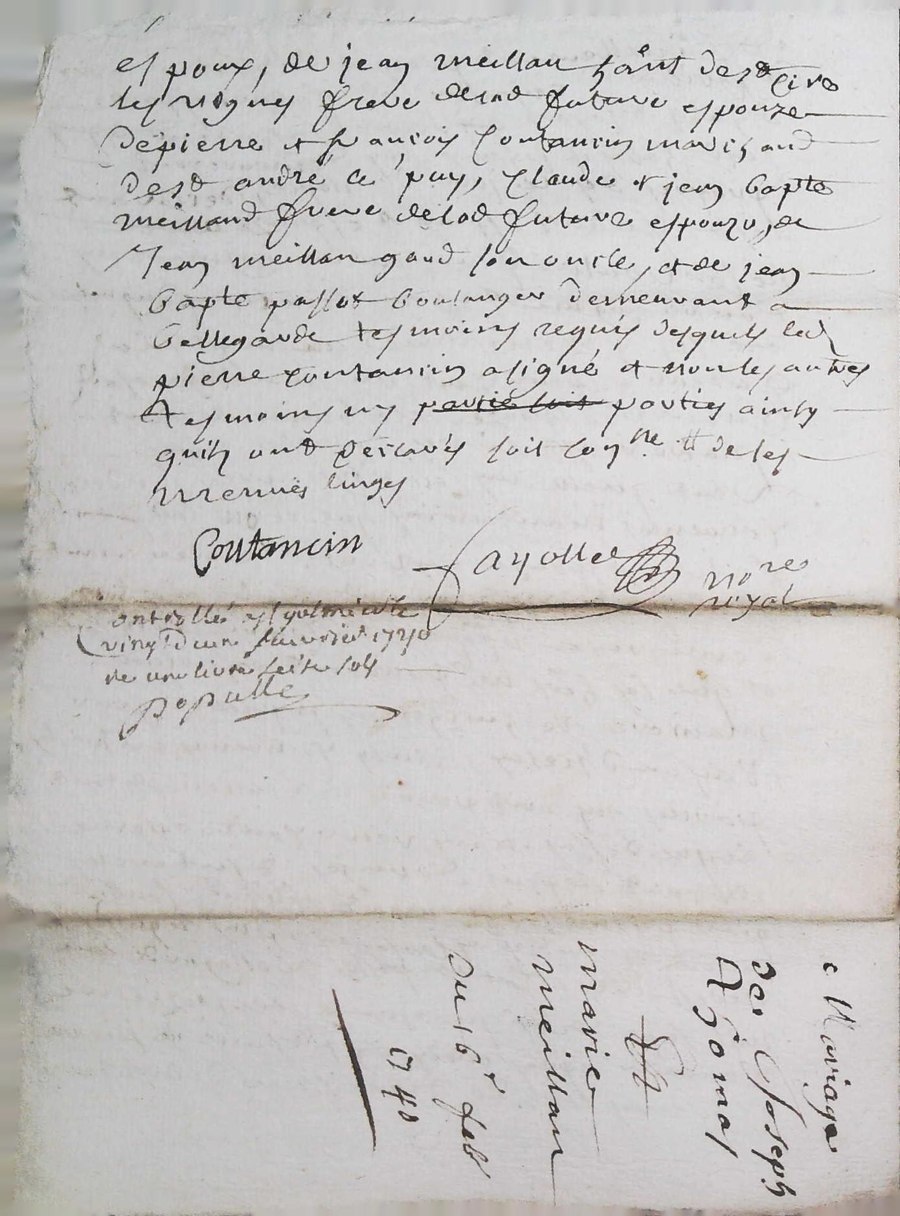 espoux, de jean meillan hãnt de st Cire
les vignes frere de lad future espouze
de pierre et francois Coutancin marchand
de st andré le puy, Claude et jean bapte
meilland frere de lad future espouze, de
Jean meillan gaud son oncle, et de jean
bapte passot boulanger demeurant a
bellegarde tesmoins requis desquels led
pierre coutancin a signé et non les autres
tesmoins ny partie soit parties ainsy
quilz ont desclarés soit con.ne de ses
menues linges
Coutancin
fayolles no.re
royal
Controllé a st galmier le
vingt deux fevrier 1740
re une livre seize sols
Populle
Mariage
de Joseph
Thomas
Et
marie
meillan
du 16e feb
1740